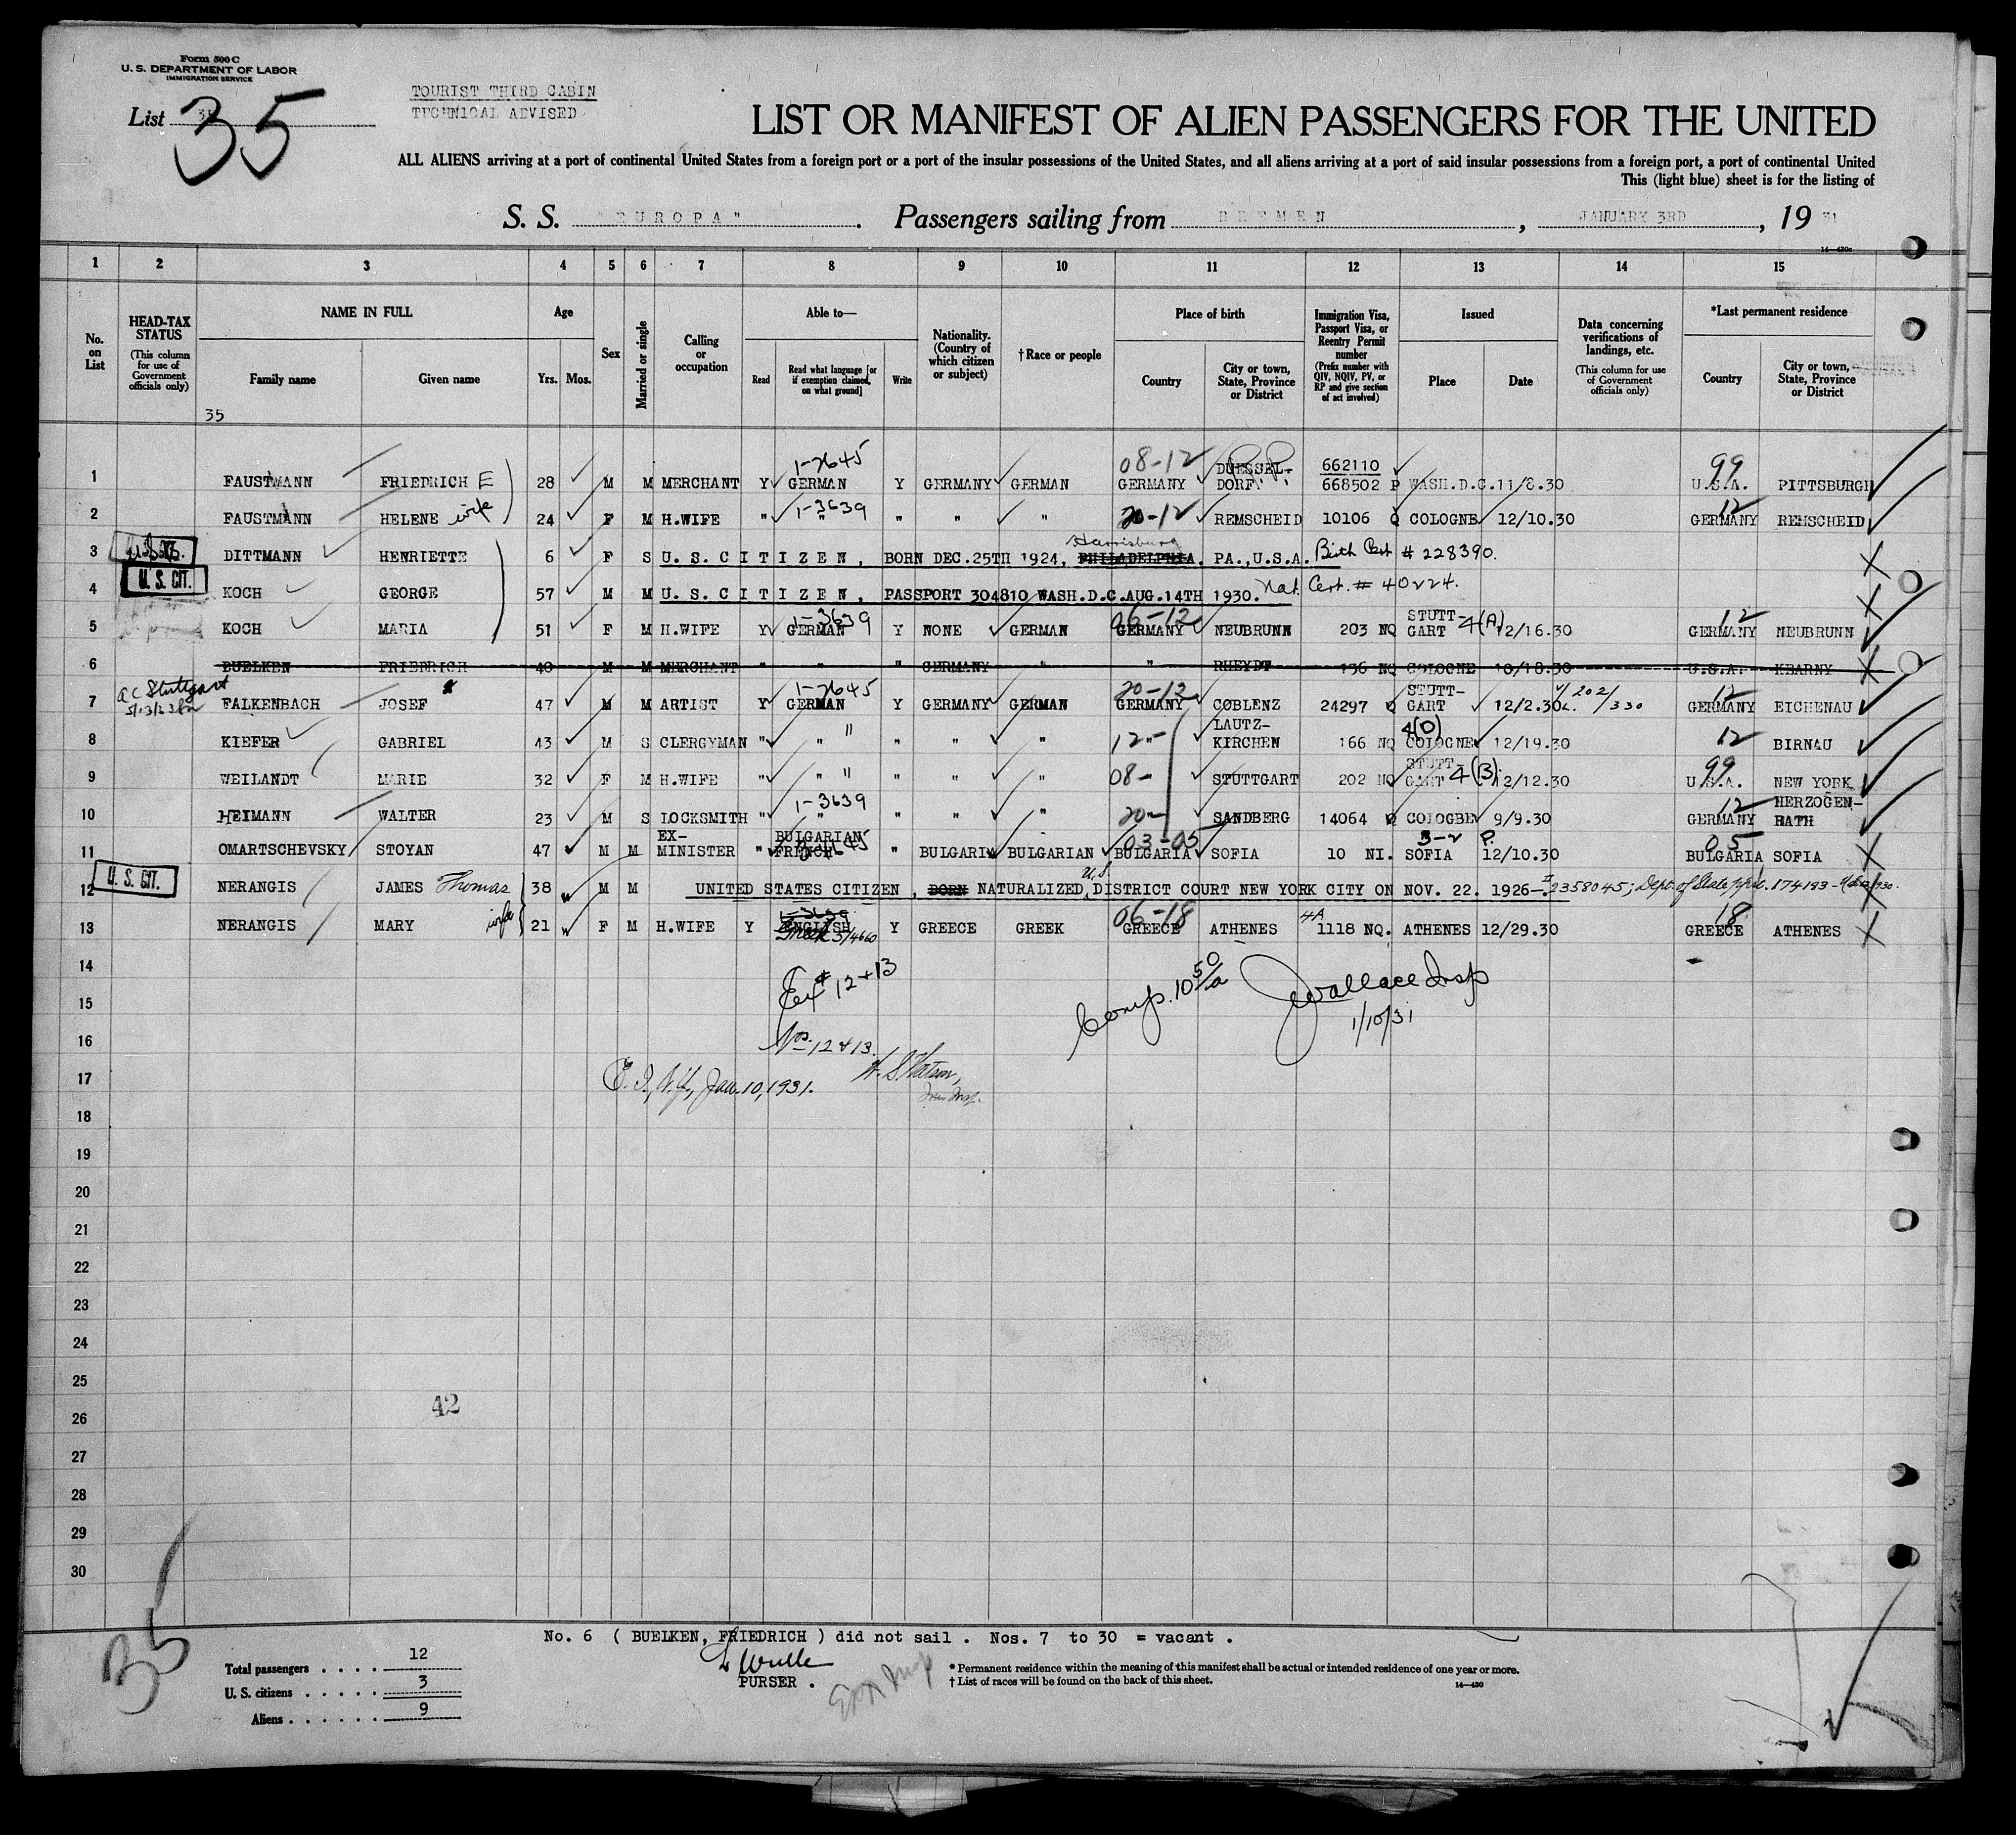 Form 500 C
U. S. DEPARTMENT OF LABOR
IMMIGRATION SERVICE
List 35
TOURIST THIRD CABIN
TECHNICAL ADVISED
LIST OR MANIFEST OF ALIEN PASSENGERS FOR THE UNITED
ALL ALIENS arriving at a port of continental United States from a foreign port or a port of the insular possessions of the United States, and all aliens arriving at a port of said insular possessions from a foreign port, a port of continental United
This (light blue) sheet is for the listing of
S. S. "EUROPA". Passengers sailing from BREMEN, JANUARY 3RD, 19 31
14—430c
1 2 3 4 5 6 7 8 9 10 11 12 13 14 15
No. on List
HEAD-TAX STATUS (This column for use of Government officials only)
NAME IN FULL
Family name
Given name
Age
Yrs. Mos.
Sex
Married or single
Calling or occupation
Able to—
Read
Read what language [or if exemption claimed, on what ground]
Write
Nationality. (Country of which citizen or subject)
†Race or people
Place of birth
Country
City or town, State, Province or District
Immigration Visa, Passport Visa, or Reentry Permit number (Prefix number with QIV, NQIV, PV, or RP and give section of act involved)
Issued
Place
Date
Data concerning verifications of landings, etc. (This column for use of Government officials only)
*Last permanent residence
Country
City or town, State, Province or District
35
1-2645 08-12 DUESSEL- 662110 99
1 FAUSTMANN FRIEDRICH E 28 M M MERCHANT Y GERMAN Y GERMANY GERMAN GERMANY DORF. 668502 P WASH.D.C. 11/8.30 U.S.A. PITTSBURGH
1-3639 20-12 12
2 FAUSTMANN HELENE wife 24 F M H.WIFE " " " " " REMSCHEID 10106 Q COLOGNE 12/10.30 GERMANY REMSCHEID
Harrisburg
3 DITTMANN HENRIETTE 6 F S U.S.CITIZEN, BORN DEC.25TH 1924, PHILADELPHIA. PA.,U.S.A. Birth Cert # 228390.
U. S. CIT.
4 KOCH GEORGE 57 M M U.S.CITIZEN, PASSPORT 304810 WASH.D.C.AUG.14TH 1930. Nat. Cert. # 40224.
1-3639 06-12 STUTT- 12
5 KOCH MARIA 51 F M H.WIFE Y GERMAN Y NONE GERMAN GERMANY NEUBRUNN 203 NQ GART 4(A) 12/16.30 GERMANY NEUBRUNN
6 BUELKEN FRIEDRICH 40 M M MERCHANT " " " GERMANY " " RHEYDT 136 NQ COLOGNE 10/18.30 U.S.A. KEARNY
ac Stuttgart 1-2645 20-12 STUTT- V 202/ 12
7 FALKENBACH JOSEF 47 M M ARTIST Y GERMAN Y GERMANY GERMAN GERMANY COBLENZ 24297 Q GART 12/2.30 330 GERMANY EICHENAU
12 LAUTZ- 4(D) 12
8 KIEFER GABRIEL 43 M S CLERGYMAN " " " " " " KIRCHEN 166 NQ COLOGNE 12/19.30 BIRNAU
08 STUTT- 99
9 WEILANDT MARIE 32 F M H.WIFE " " " " " " STUTTGART 202 NQ GART 4(B) 12/12.30 U.S.A. NEW YORK
1-3639 20 12 HERZOGEN-
10 HEIMANN WALTER 23 M S LOCKSMITH " " " " " SANDBERG 14064 Q COLOGBE 9/9.30 GERMANY RATH
EX- BULGARIAN 03-05 3-2 P. 05
11 OMARTSCHEVSKY STOYAN 47 M M MINISTER " FRENCH " BULGARIA BULGARIAN BULGARIA SOFIA 10 NI. SOFIA 12/10.30 BULGARIA SOFIA
U. S. CIT.
12 NERANGIS JAMES Thomas 38 M M UNITED STATES CITIZEN, BORN NATURALIZED, U.S. DISTRICT COURT NEW YORK CITY ON NOV. 22. 1926—. 2358045; Dept. of State pprt. 174193
1-3639 06-18 4A 18
13 NERANGIS MARY wife 21 F M H.WIFE Y ENGLISH Greek 3/4660 Y GREECE GREEK GREECE ATHENES 1118 NQ. ATHENES 12/29.30 GREECE ATHENES
14
12+13
Comp. 10 50/a
JWallace Insp
15
1/10/31
16
Nos. 12 & 13.
17
E. I., N.Y., Jan. 10, 1931.
W. S. Watson,
18
19
20
21
22
23
24
25
42
26
27
28
29
30
35
No. 6 ( BUELKEN, FRIEDRICH ) did not sail . Nos. 7 to 30 = vacant .
PURSER .
Total passengers . . . . 12
U. S. citizens . . . . . 3
Aliens . . . . . . 9
* Permanent residence within the meaning of this manifest shall be actual or intended residence of one year or more.
† List of races will be found on the back of this sheet.
14—430